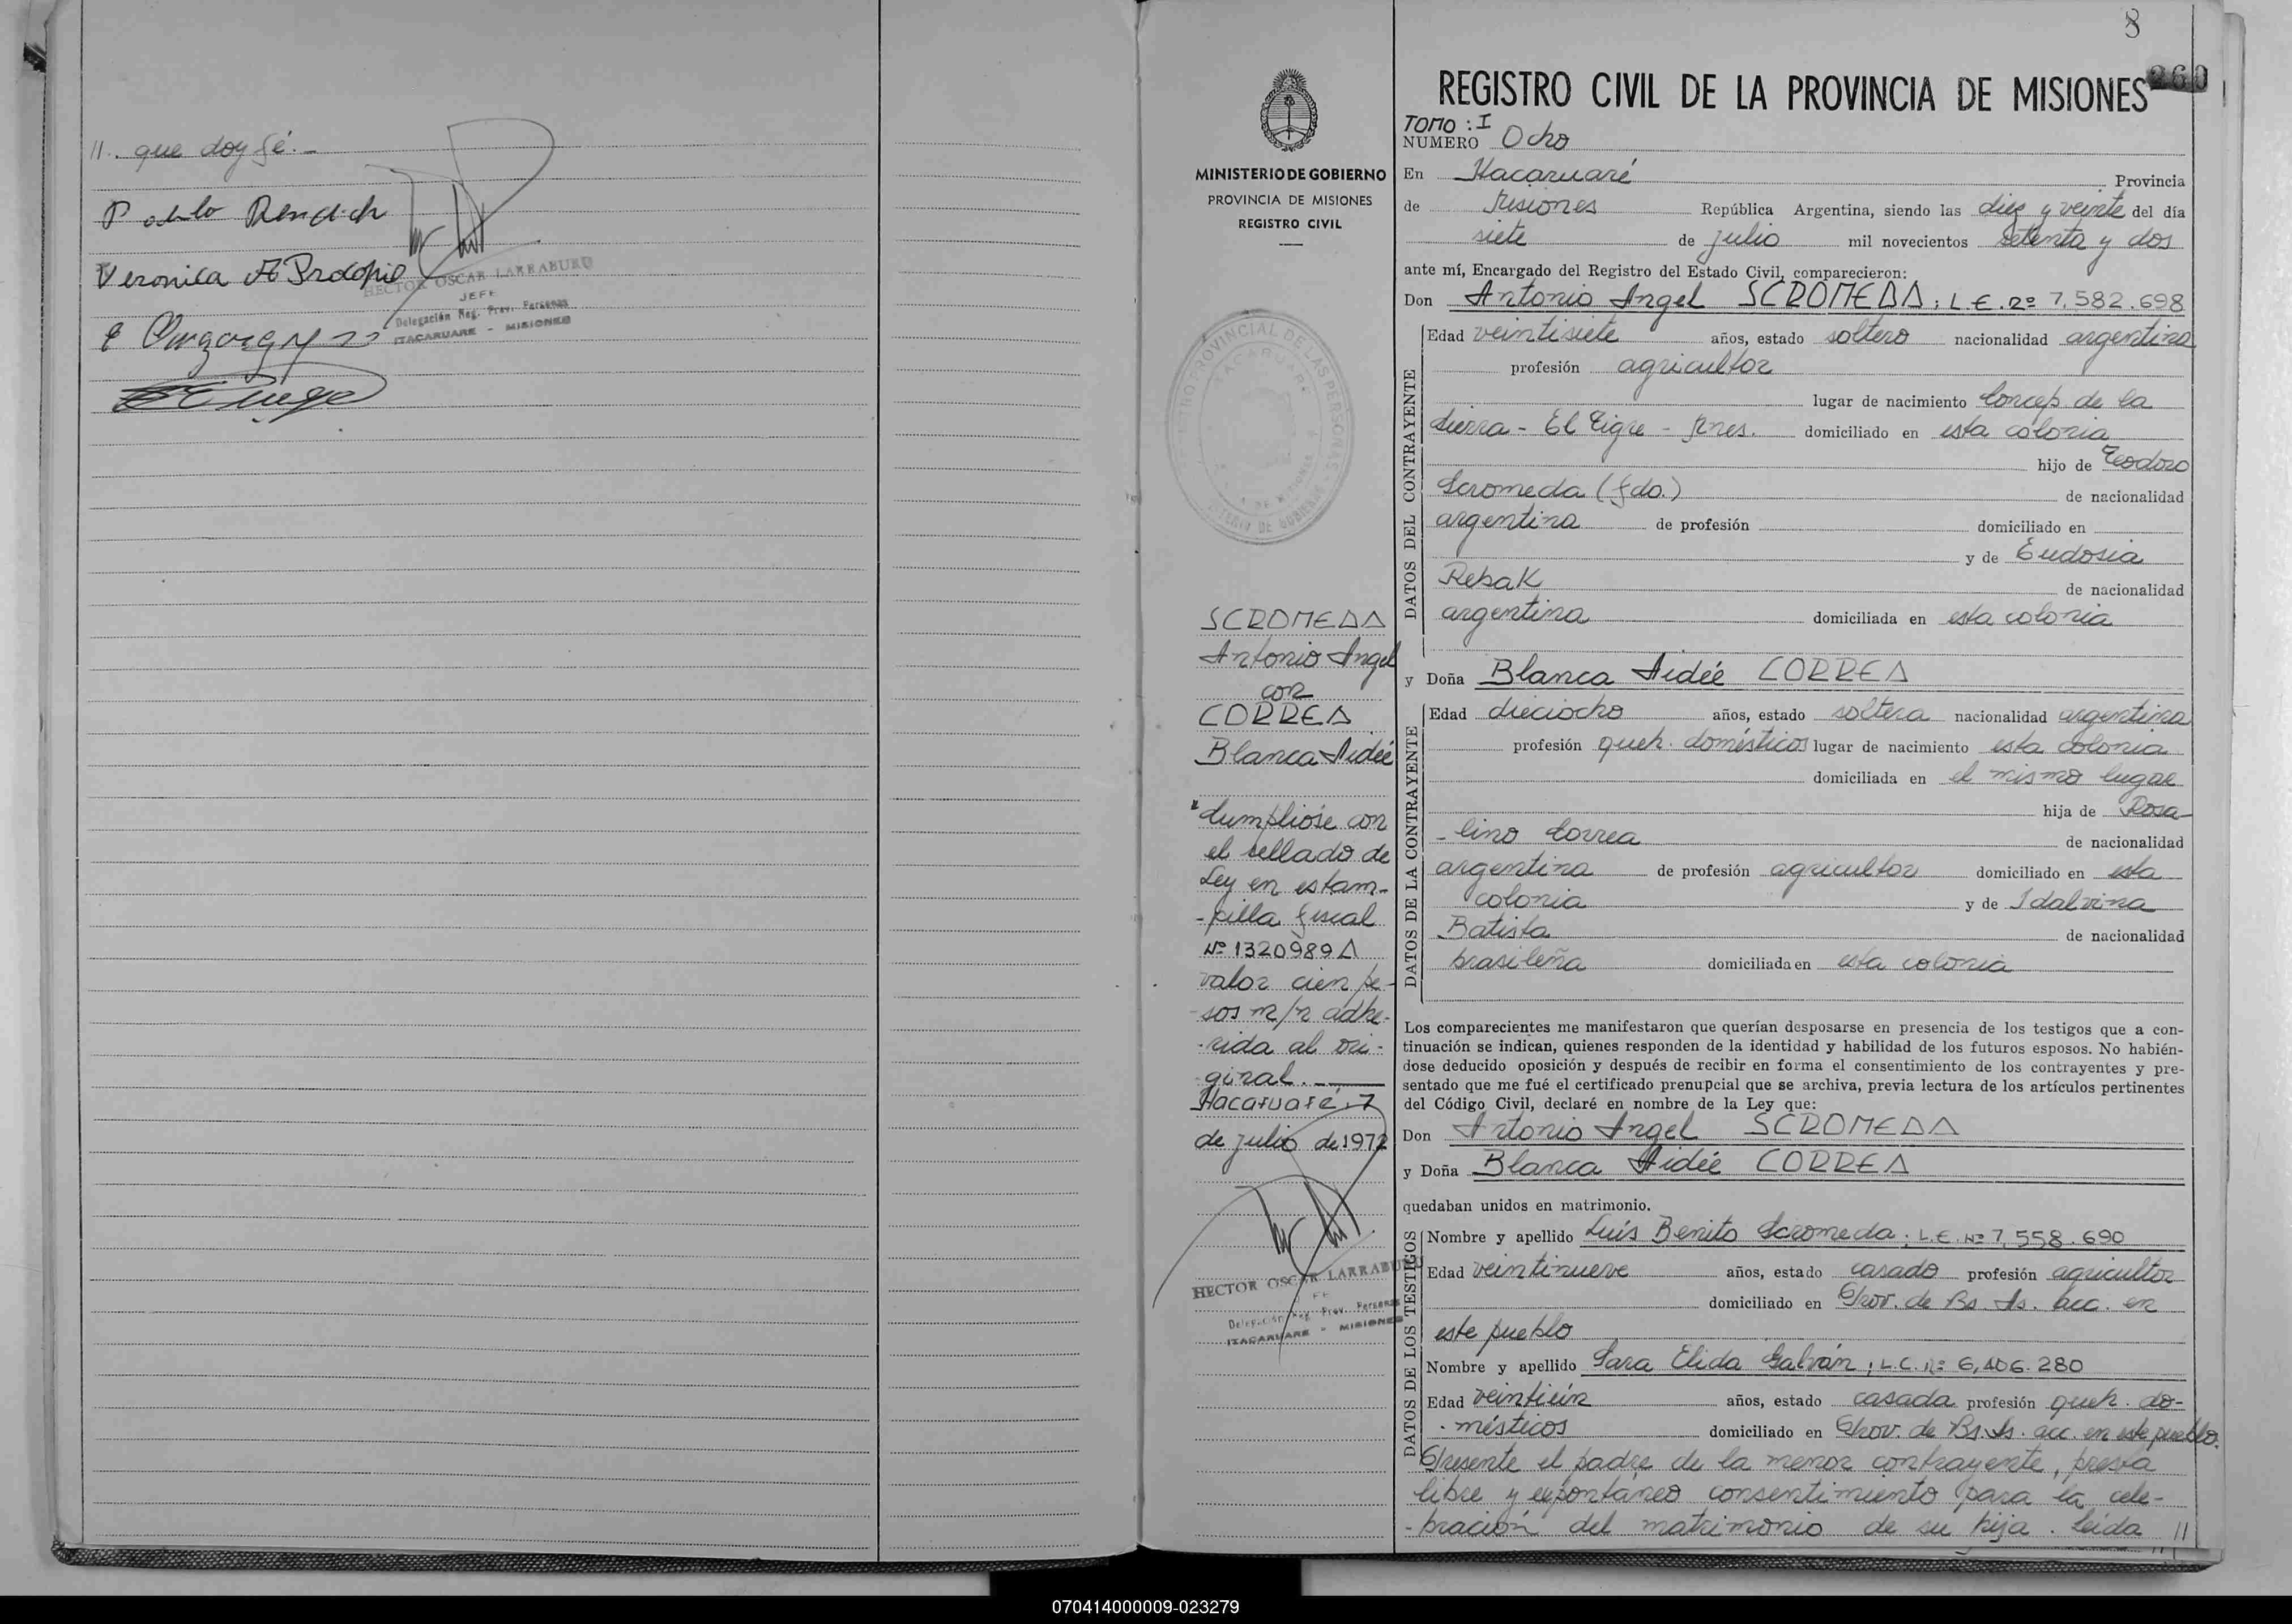 //. que doy fé.-
Veronica A Procopio
HECTOR OSCAR LARRABURU
JEFE
Delegación Reg. Prov. Personas
ITACARUARE - MISIONES
8
260
REGISTRO CIVIL DE LA PROVINCIA DE MISIONES
MINISTERIO DE GOBIERNO
PROVINCIA DE MISIONES
REGISTRO CIVIL
SCROMEDA
Antonio Angel
con
CORREA
Blanca Aidée
Cumplióse con
el sellado de
Ley en estam-
-pilla fiscal
Nº 1320989 A
valor cien pe-
-sos m/n adhe-
-rida al ori-
-ginal.
Itacaruaré, 7
de julio de 1972
HECTOR OSCAR LARRABURU
JEFE
Delegación Reg. Prov. Personas
ITACARUARE - MISIONES
TOMO : I
NUMERO Ocho
En Itacaruaré Provincia
de Misiones República Argentina, siendo las diez y veinte del día
siete de julio mil novecientos setenta y dos
ante mí, Encargado del Registro del Estado Civil, comparecieron:
Don Antonio Angel SCROMEDA; L.E. nº 7.582.698
DATOS DEL CONTRAYENTE
Edad veintisiete años, estado soltero nacionalidad argentina
profesión agricultor
lugar de nacimiento Concep. de la
Sierra - El Tigre - Mnes. domiciliado en esta colonia
hijo de Teodoro
Scromeda (fdo.) de nacionalidad
argentina de profesión domiciliado en
y de Eudosia
Rebak de nacionalidad
argentina domiciliada en esta colonia
y Doña Blanca Aidée CORREA
DATOS DE LA CONTRAYENTE
Edad dieciocho años, estado soltera nacionalidad argentina
profesión queh. domésticos lugar de nacimiento esta colonia
domiciliada en el mismo lugar
hija de Rosa-
-lino Correa de nacionalidad
argentina de profesión agricultor domiciliado en esta
colonia y de Idalvina
Batista de nacionalidad
brasileña domiciliada en esta colonia
Los comparecientes me manifestaron que querían desposarse en presencia de los testigos que a con-
tinuación se indican, quienes responden de la identidad y habilidad de los futuros esposos. No habién-
dose deducido oposición y después de recibir en forma el consentimiento de los contrayentes y pre-
sentado que me fué el certificado prenupcial que se archiva, previa lectura de los artículos pertinentes
del Código Civil, declaré en nombre de la Ley que:
Don Antonio Angel SCROMEDA
y Doña Blanca Aidée CORREA
quedaban unidos en matrimonio.
DATOS DE LOS TESTIGOS
Nombre y apellido Luis Benito Scromeda; L.E. Nº 7.558.690
Edad veintinueve años, estado casado profesión agricultor
domiciliado en Prov. de Bs. As. acc. en
este pueblo
Nombre y apellido Sara Elida Galván; L.C. nº 6.406.280
Edad veintiún años, estado casada profesión queh. do-
-mésticos domiciliado en Prov. de Bs. As. acc. en este pueblo.
Presente el padre de la menor contrayente, presta
libre y expontáneo consentimiento para la cele-
-bración del matrimonio de su hija. Leída //
070414000009-023279